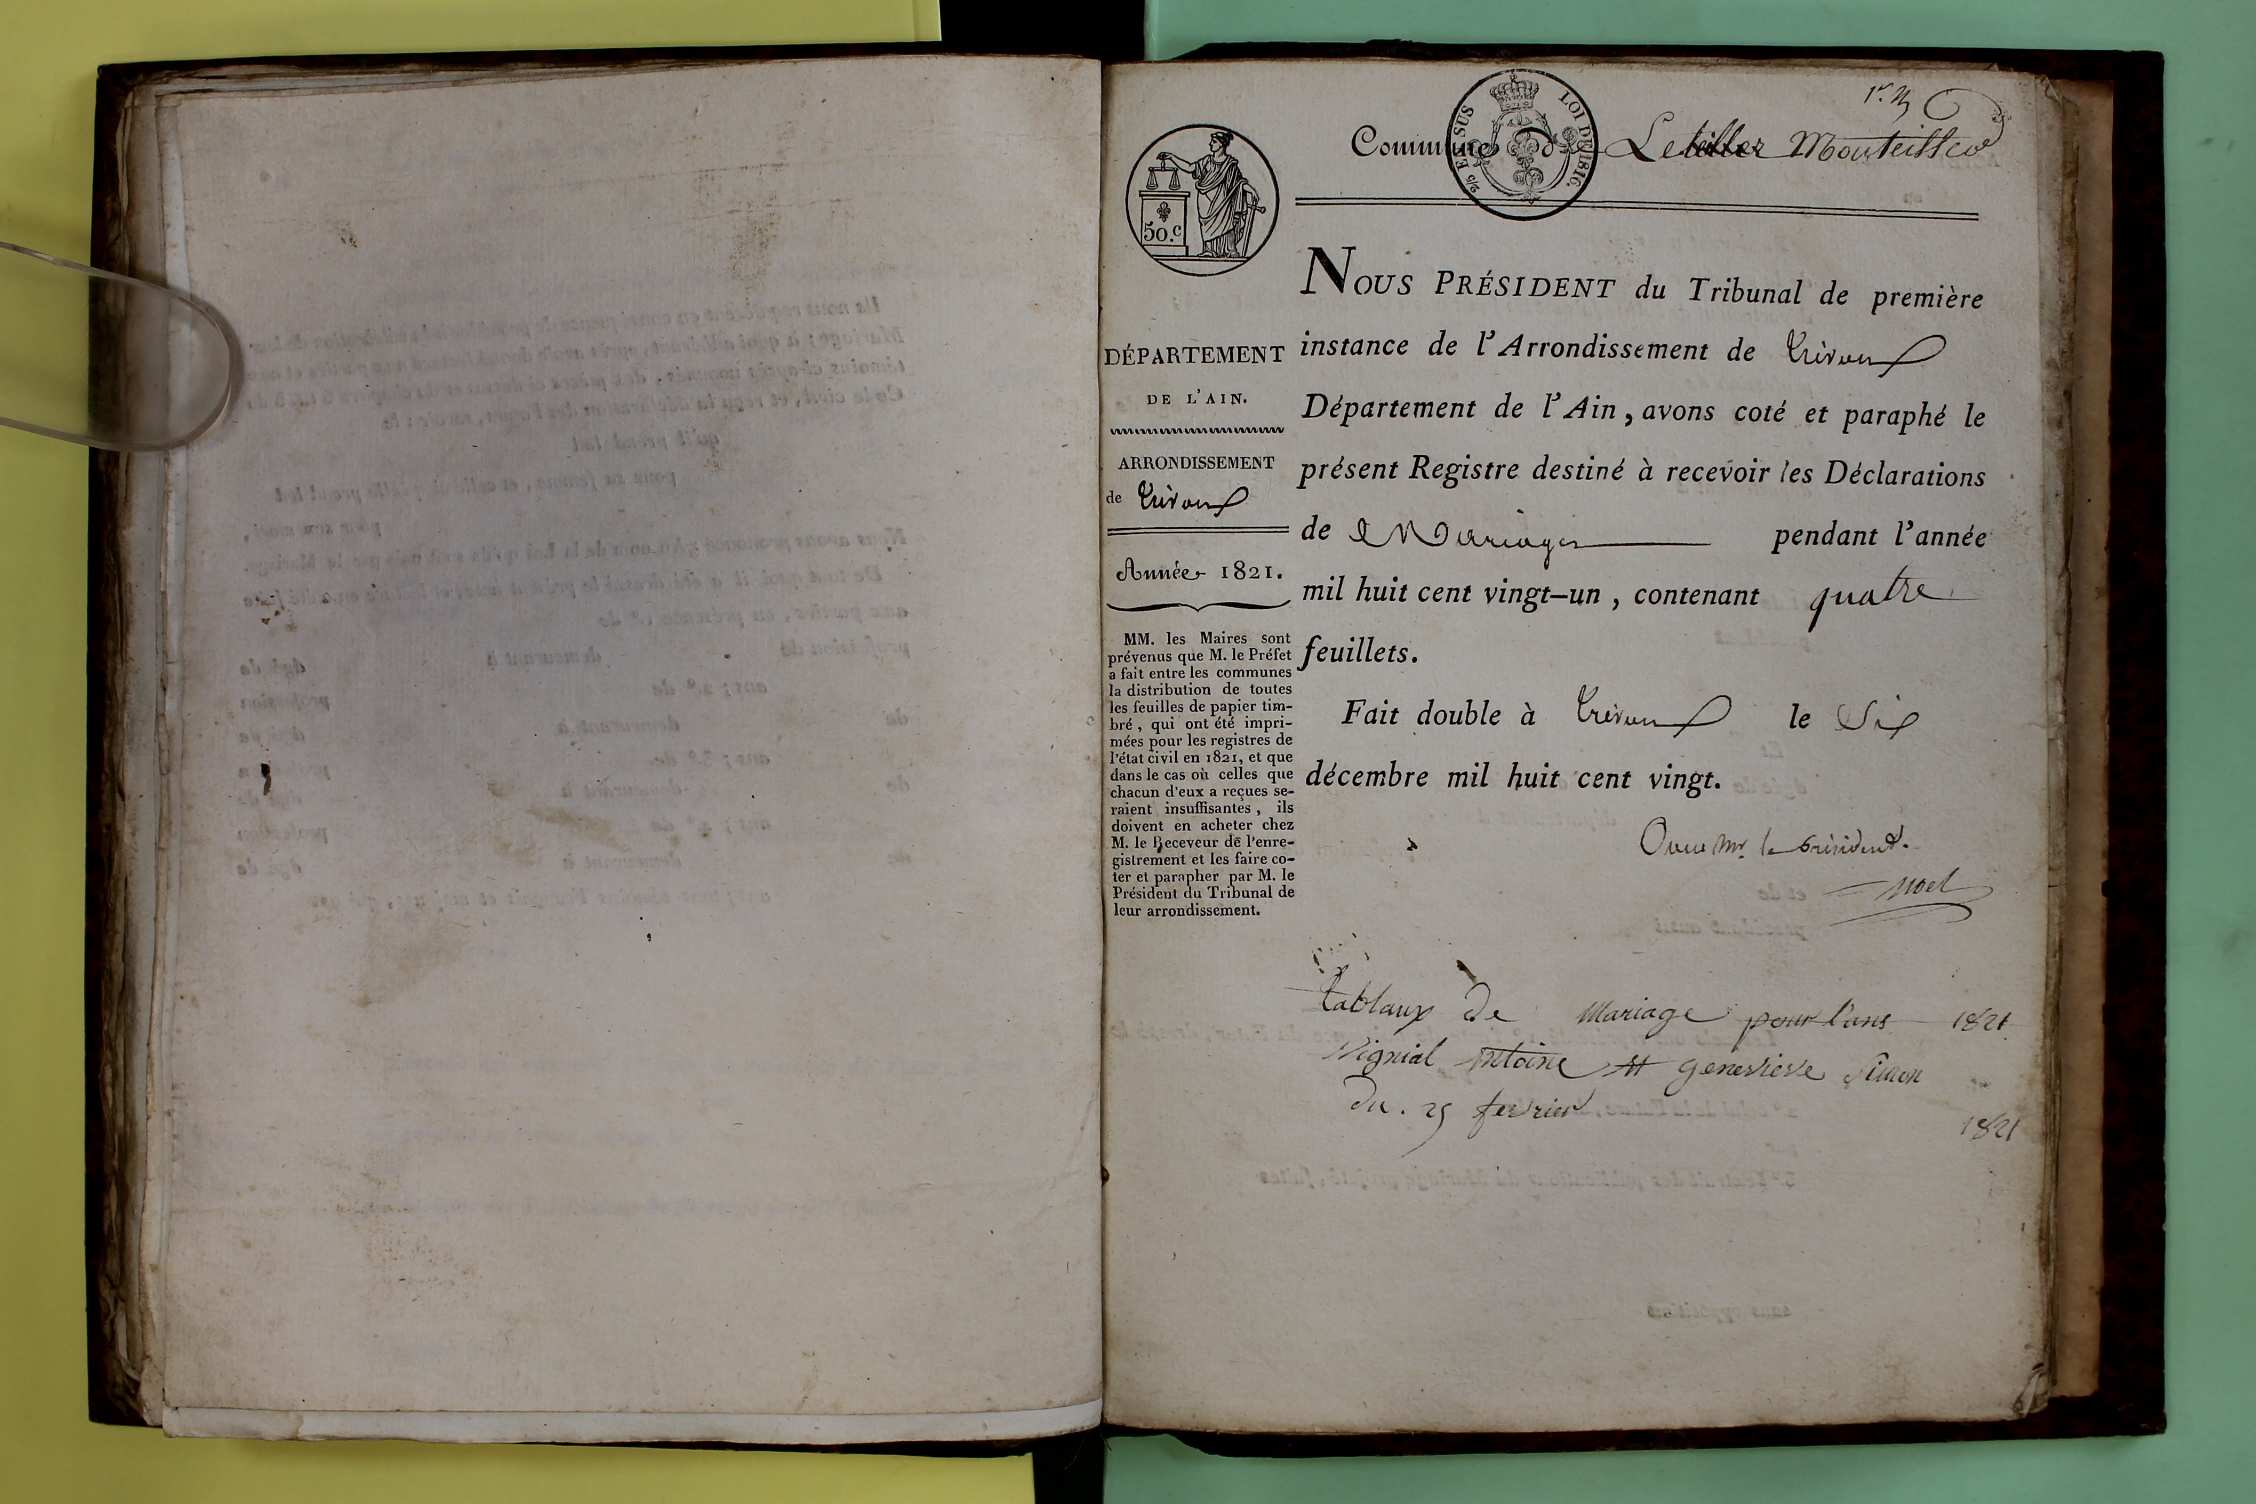 1er
Commune de Le Montellier
2/5 EN SUS
LOI DE 1816.
50.c
NOUS PRÉSIDENT du Tribunal de première
instance de l'Arrondissement de Trévoux
Département de l'Ain, avons coté et paraphé le
présent Registre destiné à recevoir les Déclarations
de Mariages pendant l'année
mil huit cent vingt-un, contenant quatre
feuillets.
Fait double à Trévoux le Six
décembre mil huit cent vingt.
le président.
Noel
DÉPARTEMENT
DE L'AIN.
ARRONDISSEMENT
de Trévoux
Année 1821.
MM. les Maires sont
prévenus que M. le Préfet
a fait entre les communes
la distribution de toutes
les feuilles de papier tim-
bré, qui ont été impri-
mées pour les registres de
l'état civil en 1821, et que
dans le cas où celles que
chacun d'eux a reçues se-
raient insuffisantes, ils
doivent en acheter chez
M. le Receveur de l'enre-
gistrement et les faire co-
ter et parapher par M. le
Président du Tribunal de
leur arrondissement.
tablaux de Mariage pour l'ans 1821
Vignial Antoine et genevieve Simon
du. 25 fevrier 1821